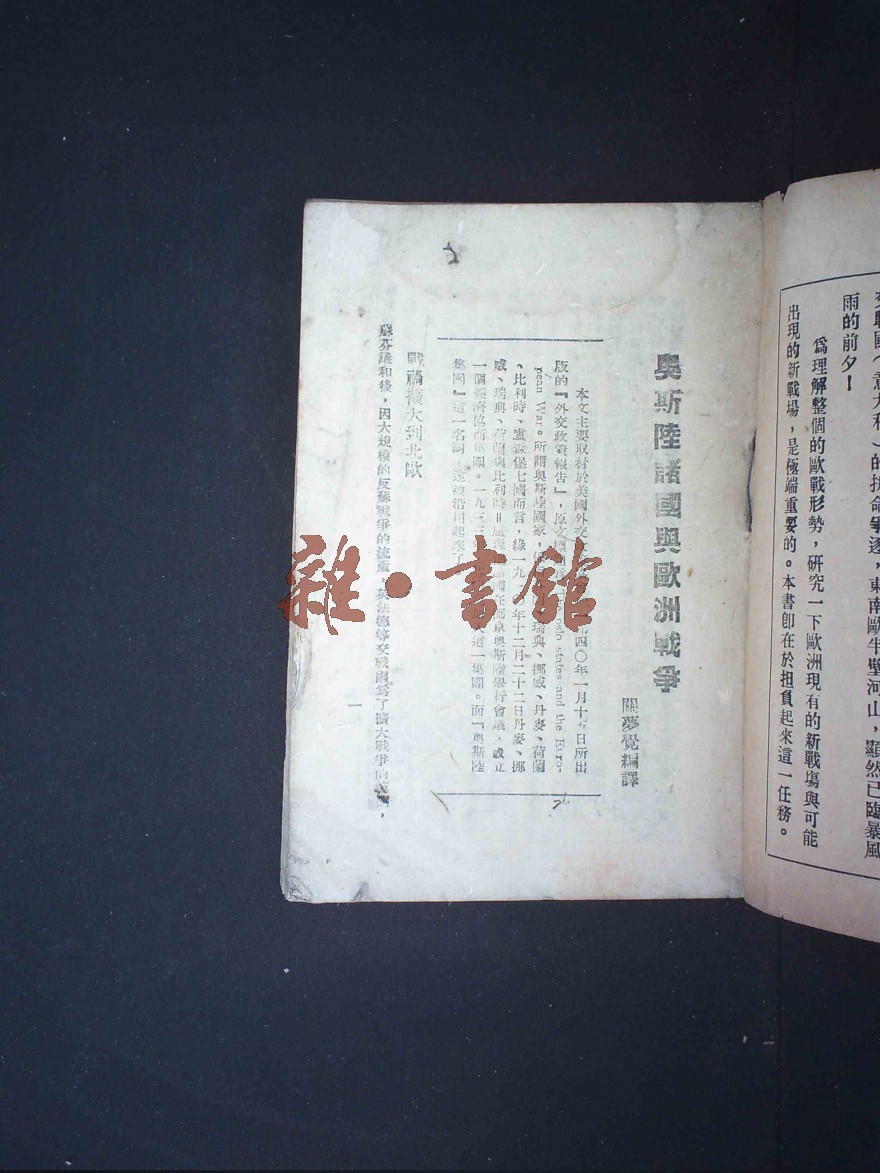 雨的前夕！
爲理解整個的歐戰形勢，研究一下歐洲現有的新戰場與可能
出現的新戰場，是極端重要的。本書卽在於担負起來這一任務。
奧斯陸諸國與歐洲戰爭
關夢覺編譯
本文主要取材於美國外交 四〇年一月十五日所出
版的『外交政策報告』，原文標 states and the Euro-
pean War。所謂奧斯陸國家， 瑞典、挪威、丹麥、荷蘭
、比利時、盧森堡七國而言，緣一九 〇年十二月二十二日丹麥、挪
威、瑞典、荷蘭與比利時 在挪京奧斯陸舉行會議，成立
一個經濟協商集團。一九三 這一集團。而『奧斯陸
集團』這一名詞， 沿用起來了
戰禍擴大到北歐
蘇芬議和後，因大規模的反蘇戰爭的流產，英法德等交戰國爲了擴大戰爭的
一
雜·書館